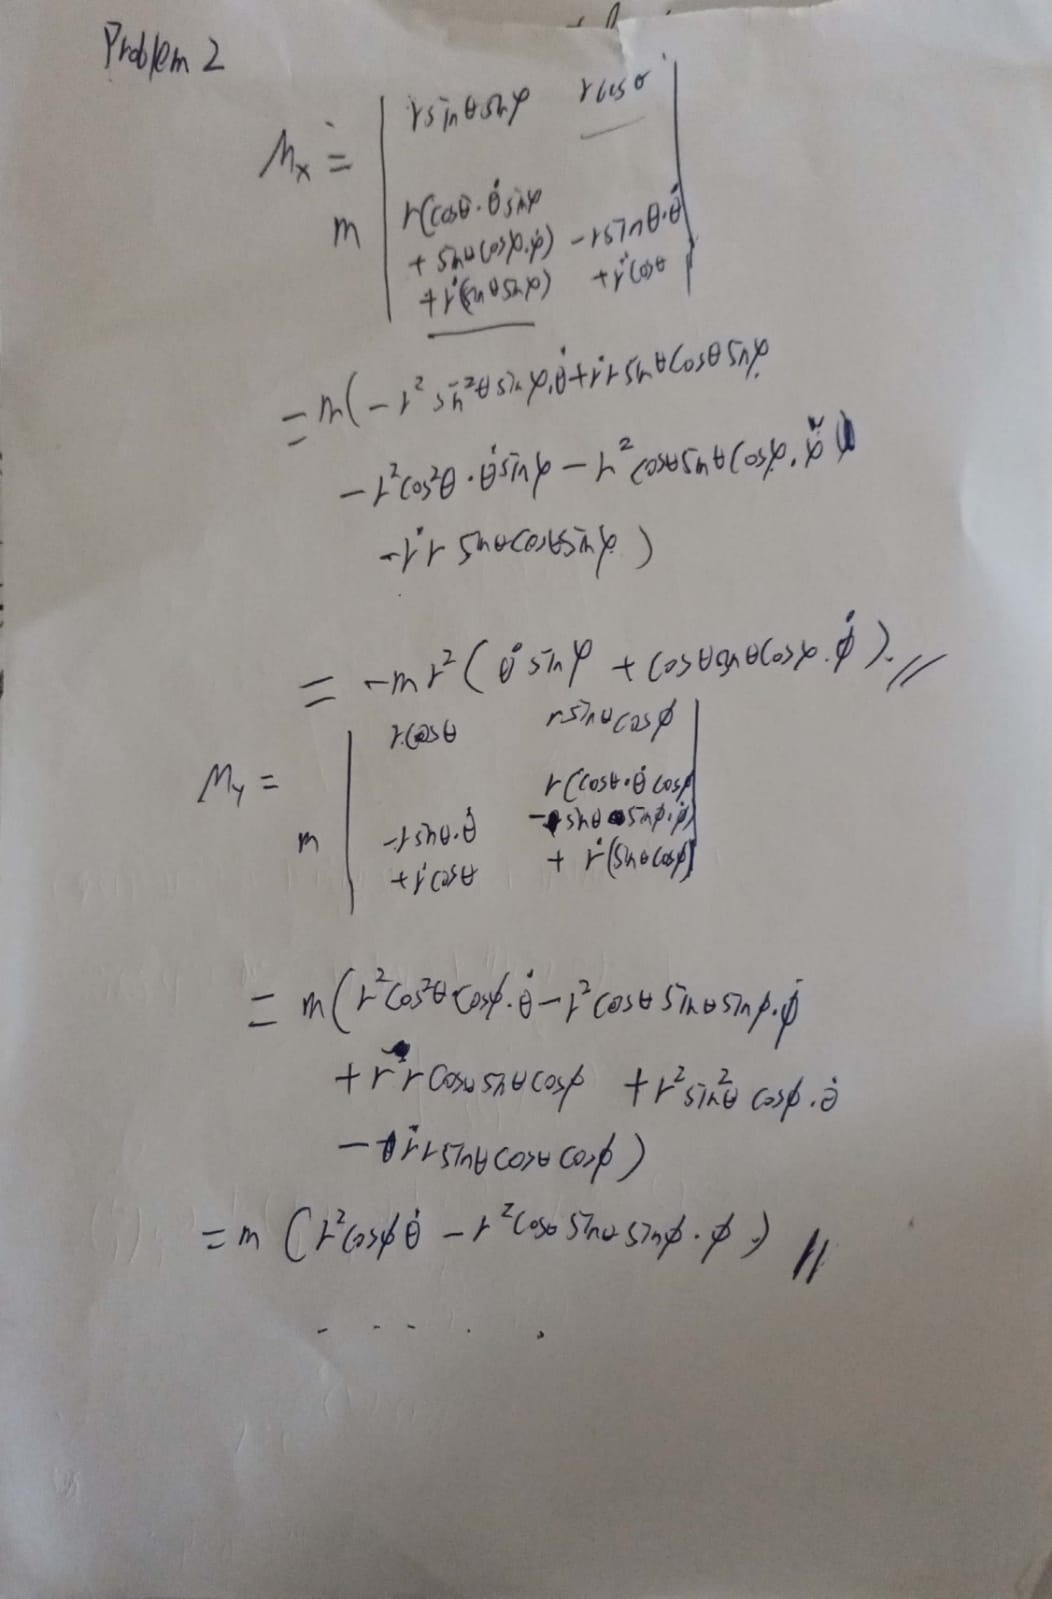 Problem 2
Mx = m | r sinθ sinφ   r cosθ |
| r(cosθ·θ̇ sinφ
+ sinθ cosφ·φ̇)   -r sinθ·θ̇
+ ṙ(sinθ sinφ)   + ṙ cosθ |
= m(-r² sin²θ sinφ·θ̇ + ṙr sinθ cosθ sinφ
- r² cos²θ·θ̇ sinφ - r² cosθ sinθ cosφ·φ̇
- ṙr sinθ cosθ sinφ)
= -mr²(θ̇ sinφ + cosθ sinθ cosφ·φ̇).//
My = m | r cosθ   r sinθ cosϕ |
| r(cosθ·θ̇ cosϕ
-r sinθ·θ̇   - sinθ sinϕ·ϕ̇)
+ ṙ cosθ   + ṙ(sinθ cosϕ) |
= m(r² cos²θ cosϕ·θ̇ - r² cosθ sinθ sinϕ·ϕ̇
+ rṙ cosθ sinθ cosϕ + r² sin²θ cosϕ·θ̇
- ṙr sinθ cosθ cosϕ)
= m(r² cosϕ θ̇ - r² cosθ sinθ sinϕ·ϕ̇) //